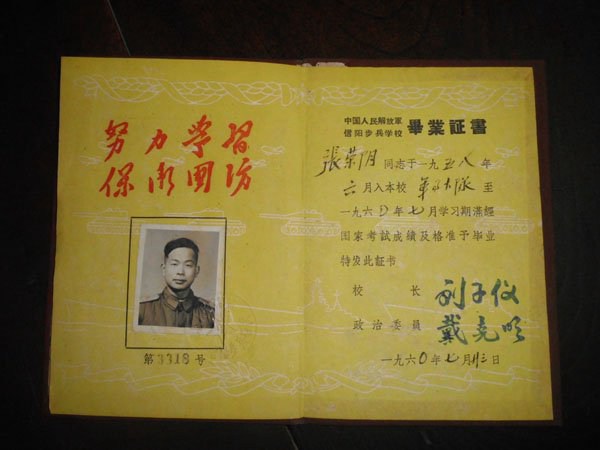 努力学習
保衛国防
第3318号
中国人民解放軍
信陽步兵学校 畢業証書
張荣阴 同志于一九五八年
六月入本校 第 大隊 至
一九六〇年七月学习期滿經
国家考試成績及格准予毕业
特发此証书
校長 刘子仪
政治委員 戴克明
一九六〇年七月 日